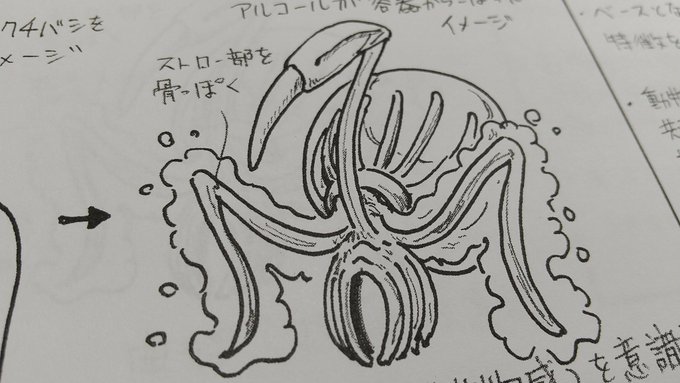 クチバシを
メージ
アルコールが容器から
イメージ
ストロー部を
骨っぽく
・ベースとな
特徴を
・動物
を意識